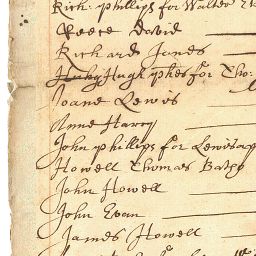 Rich. phillips for Walter
Reece David
Richard Janes
Hugh phes for Tho:
Joane Lewis
Anne Harry
John phillips for Lewis ap
Howell Thomas Batho
John Howell
John Evan
James Howell